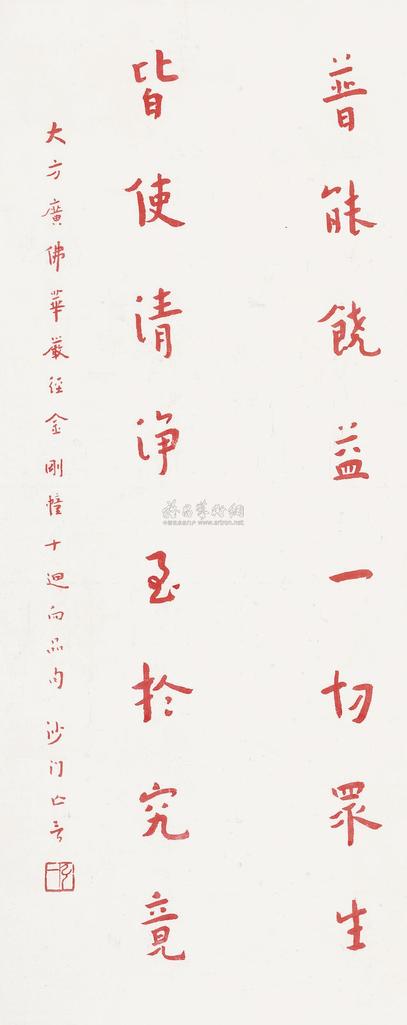 普能饒益一切眾生
皆使清淨至於究竟
大方廣佛華嚴經金剛幢十迴向品句 沙門亡言
弘一
雅昌藝術網
www.artron.net